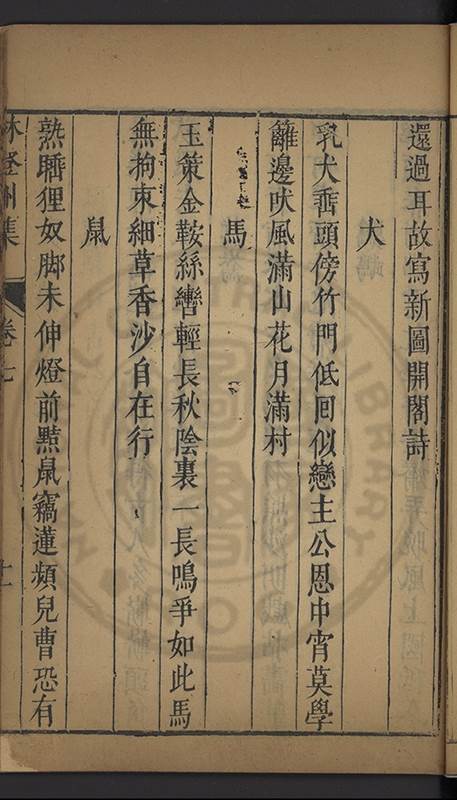 還過耳故寫新圖開閣詩
犬
乳犬垂頭傍竹門低回似戀主公恩中宵莫學
籬邊吠風滿山花月滿村
馬
玉策金鞍絲轡輕長秋陰裏一長鳴爭如此馬
無拘束細草香沙自在行
鼠
熟睡狸奴脚未伸燈前黠鼠竊蓮頻兒曹恐有
林登州集
卷七
十一